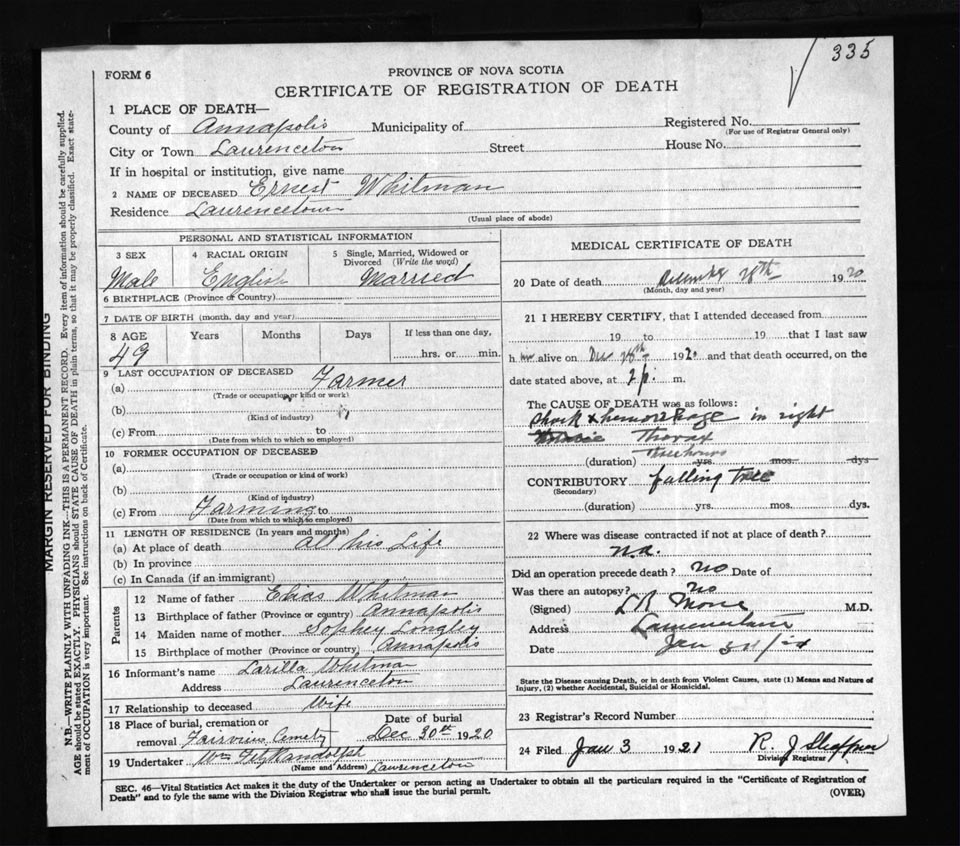 335
FORM 6
PROVINCE OF NOVA SCOTIA
CERTIFICATE OF REGISTRATION OF DEATH
1 PLACE OF DEATH—
County of Annapolis Municipality of Registered No.
(For use of Registrar General only)
City or Town Laurenceton Street House No.
If in hospital or institution, give name
2 NAME OF DECEASED Ernest Whitman
Residence Laurencetown
(Usual place of abode)
PERSONAL AND STATISTICAL INFORMATION
3 SEX 4 RACIAL ORIGIN 5 Single, Married, Widowed or Divorced (Write the word)
Male English Married
6 BIRTHPLACE (Province or Country)
7 DATE OF BIRTH (month, day and year)
8 AGE Years Months Days If less than one day,
49 hrs. or min.
9 LAST OCCUPATION OF DECEASED
(a) Farmer
(Trade or occupation or kind or work)
(b)
(Kind of industry)
(c) From to
(Date from which to which so employed)
10 FORMER OCCUPATION OF DECEASED
(a)
(Trade or occupation or kind of work)
(b)
(Kind of industry)
(c) From Farming to
(Date from which to which so employed)
11 LENGTH OF RESIDENCE (In years and months)
(a) At place of death All his Life
(b) In province
(c) In Canada (if an immigrant)
Parents
12 Name of father Elias Whitman
13 Birthplace of father (Province or country) Annapolis
14 Maiden name of mother Sophey Longley
15 Birthplace of mother (Province or country) Annapolis
16 Informant's name Larilla Whitman
Address Laurenceton
17 Relationship to deceased Wife
18 Place of burial, cremation or removal Date of burial
Dec 30th 1920
19 Undertaker Wm
(Name and Address) Laurenceton
MEDICAL CERTIFICATE OF DEATH
20 Date of death December 28th 1920
(Month, day and year)
21 I HEREBY CERTIFY, that I attended deceased from
19 to 19 that I last saw
h im alive on Dec 28th 192 and that death occurred, on the
date stated above, at 2 p. m.
The CAUSE OF DEATH was as follows:
Shock & hemorrhage in right
Thorax
(duration) Three hours yrs. mos. dys
CONTRIBUTORY falling tree
(Secondary)
(duration) yrs. mos. dys.
22 Where was disease contracted if not at place of death?
n.a.
Did an operation precede death? no Date of
Was there an autopsy? no
(Signed) L R Morse M.D.
Address
Date Jan
State the Disease causing Death, or in death from Violent Causes, state (1) Means and Nature of
Injury, (2) whether Accidental, Suicidal or Homicidal.
23 Registrar's Record Number
24 Filed Jan 3 1921 R. J
Division Registrar
SEC. 46—Vital Statistics Act makes it the duty of the Undertaker or person acting as Undertaker to obtain all the particulars required in the "Certificate of Registration of
Death" and to fyle the same with the Division Registrar who shall issue the burial permit.
(OVER)
MARGIN RESERVED FOR BINDING
N.B.—WRITE PLAINLY WITH UNFADING INK—THIS IS A PERMANENT RECORD. Every item of information should be carefully supplied.
AGE should be stated EXACTLY. PHYSICIANS should STATE CAUSE OF DEATH in plain terms, so that it may be properly classified. Exact state-
ment of OCCUPATION is very important. See instructions on back of Certificate.